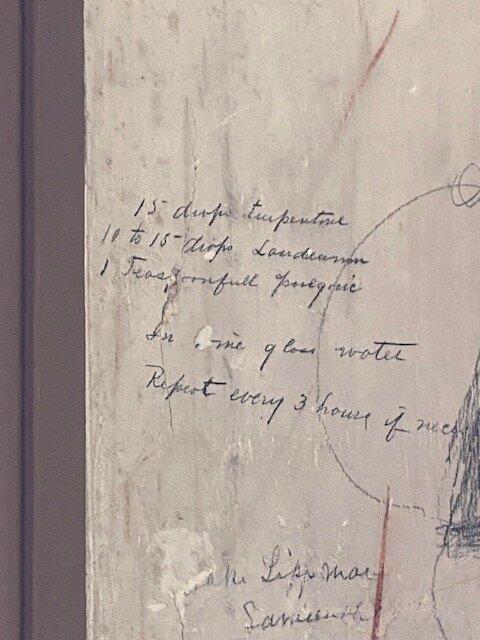 15 drops turpentine
10 to 15 drops Laudeunm
1 Teaspoonfull paregoric
In wine glass water
Repeat every 3 hours if nece
Lippman
Savannah